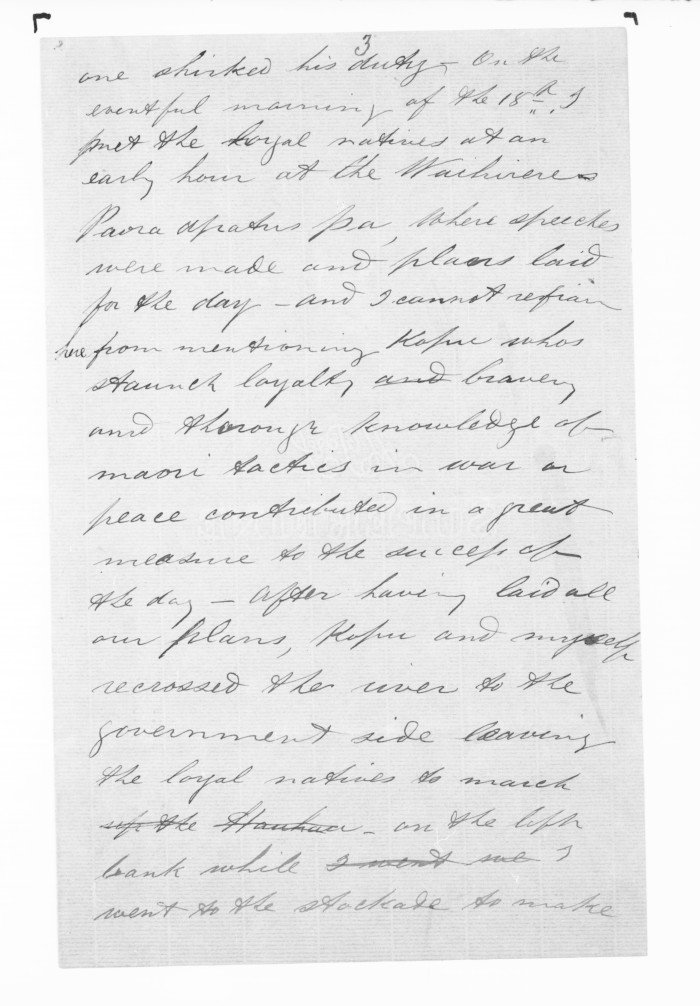 3
one shirked his duty - On the
eventful morning of the 18th, I
met the loyal natives at an
early hour at the Waihirere
Paora apatus Pa, where speeches
were made and plans laid
for the day - and I cannot refrain
here from mentioning Kopu whos
staunch loyalty and bravery
and thorough knowledge of
maori tactics in war or
peace contributed in a great
measure to the success of
the day - After having laid all
our plans, Kopu and myself
recrossed the river to the
government side leaving
the loyal natives to march
up the Hauhau - on the left
bank while I went we I
went to the stockade to make